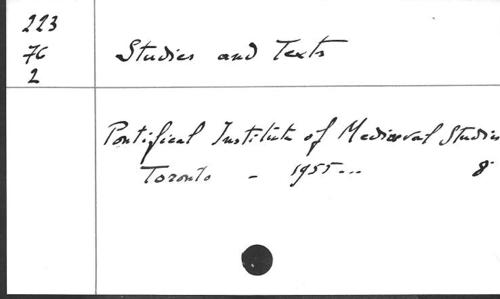 223
76
2
Studies and Texts
Pontifical Institute of Mediæval Studies
Toronto - 1955... 8°